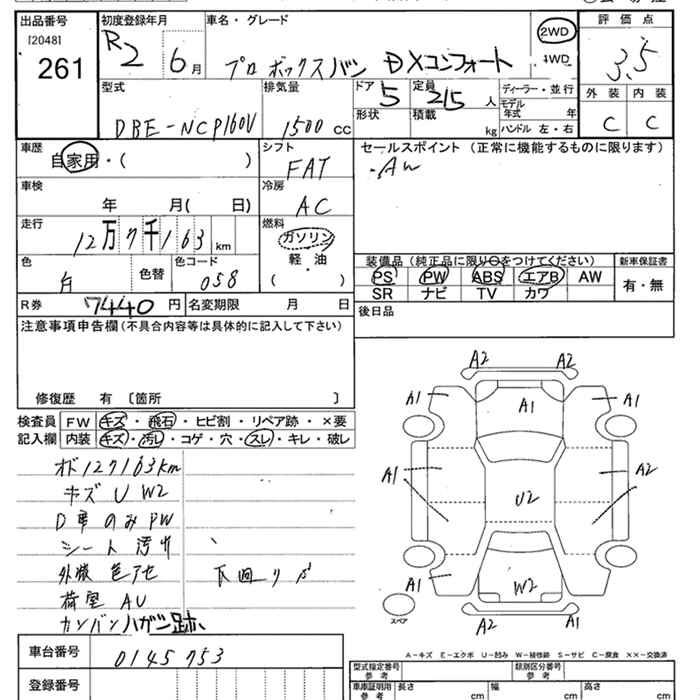 出品番号
[2048]
261
初度登録年月
R2 6月
車名・グレード
プロボックスバン DXコンフォート
2WD
4WD
評価点
3.5
外装 内装
C C
型式
DBE-NCP160V
排気量
1500 cc
ドア 5
形状
定員 2/5 人
積載 kg
ディーラー・並行
モデル年式 年
ハンドル 左・右
車歴
自家用・( )
シフト
FAT
セールスポイント(正常に機能するものに限ります)
・AW
車検
年 月( 日)
冷房
AC
走行
12万7千163 km
燃料
ガソリン
軽・油
( )
色
白
色替
色コード
058
装備品(純正品に限り○をつけてください)
PS PW ABS エアB AW
SR ナビ TV カワ
新車保証書
有・無
R券 7440円
名変期限 月 日
後日品
注意事項申告欄(不具合内容等は具体的に記入して下さい)
修復歴 有 〔箇所 〕
検査員記入欄
FW キズ・飛石・ヒビ割・リペア跡・×要
内装 キズ・汚レ・コゲ・穴・スレ・キレ・破レ
オド127163km
キズ U W2
D席のみPW
シート 汚れ
外装 色アセ
下廻りサビ
荷室 AU
カンバンハガシ跡
A2 A2
A1 A1 A1
A1 A2
U2
A1 W2
A2 A2
スペア
A-キズ E-エクボ U-凹み W-補修跡 S-サビ C-腐食 XX-交換済
車台番号
0145753
登録番号
型式指定番号 参考
類別区分番号 参考
車庫証明用 参考
長さ cm
幅 cm
高さ cm